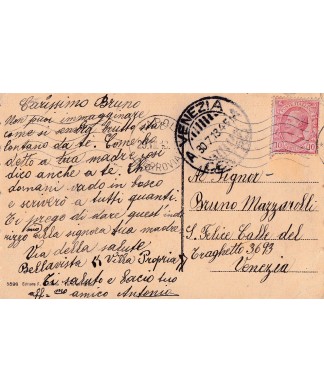 Carissimo Bruno
Non puoi immaginare
come si sento brutto sta
lontano da te. Come ho
detto a tua madre, così
dico anche a te. Che
domani vado in bosco
e scriverò a tutti quanti.
Ti prego di dare quest indi
rizzo alla signora tua madre
Via della salute
Bellavista "Villa Propria"
Ti saluto e bacio tuo
aff.mo amico Antonio
VENEZIA
10
Al Signor
Bruno Mazzarolli
S. Felice Calle del
Traghetto 3643
Venezia